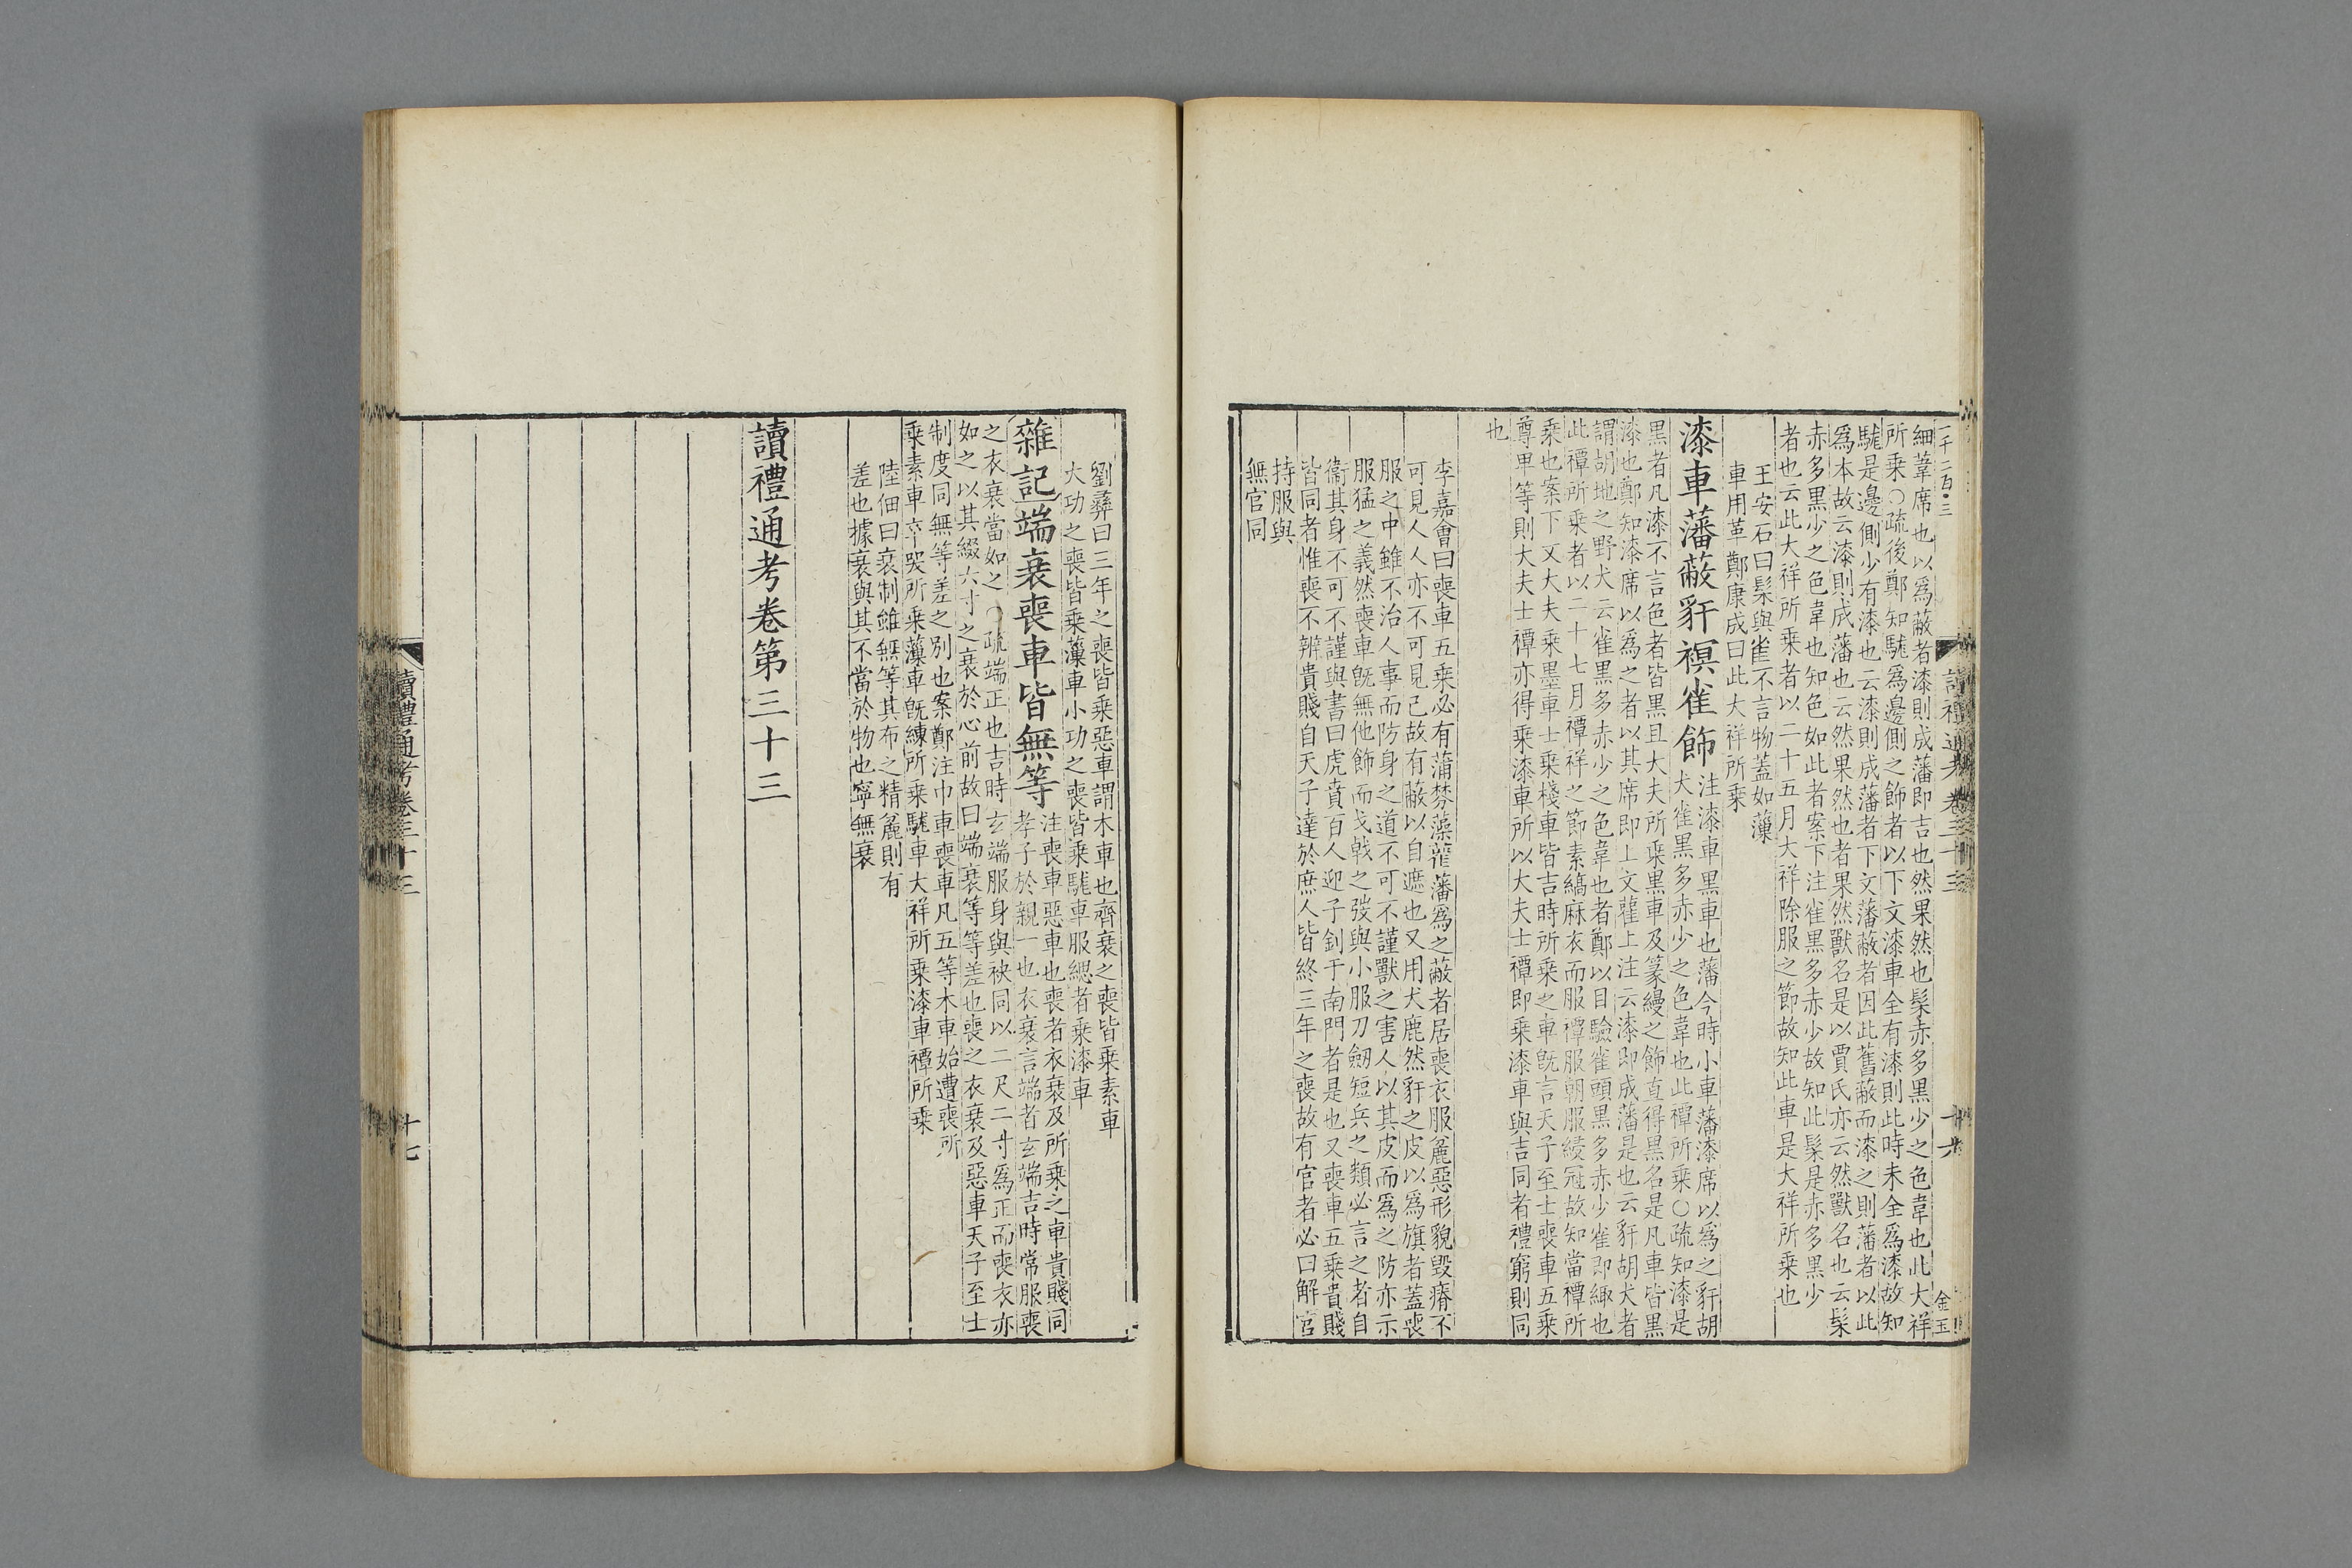 一千二百·三
細葦席也以爲蔽者漆則成藩即吉也然果然也髹赤多黑少之色韋也此大祥
所乗○疏後鄭知駹爲邊側之飾者以下文漆車全有漆則此時未全爲漆故知
駹是邊側少有漆也云漆則成藩者下文藩蔽者因此舊蔽而漆之則藩者以此
爲本故云漆則成藩也云然果然也者果然獸名是以賈氏亦云然獸名也云髹
赤多黑少之色韋也知色如此者案下注雀黑多赤少故知此髹是赤多黑少
者也云此大祥所乗者以二十五月大祥除服之節故知此車是大祥所乗也
王安石曰髹與雀不言物蓋如薻
車用革 鄭康成曰此大祥所乗
漆車藩蔽豻𧜀雀飾
注漆車黑車也藩今時小車藩漆席以爲之豻胡
犬雀黑多赤少之色韋也此禫所乗○疏知漆是
黑者凡漆不言色者皆黑且大夫所乗黑車及篆縵之飾直得黑名是凡車皆黑
漆也鄭知漆席以爲之者以其席即上文雚上注云漆即成藩是也云豻胡犬者
謂胡地之野犬云雀黑多赤少之色韋也者鄭以目驗雀頭黑多赤少雀即緅也
此禫所乗者以二十七月禫祥之節素縞麻衣而服禫服朝服綅冠故知當禫所
乗也案下又大夫乗墨車士乗棧車皆吉時所乗之車旣言天子至士喪車五乗
尊卑等則大夫士禫亦得乗漆車所以大夫士禫即乗漆車與吉同者禮窮則同
也
李嘉會曰喪車五乗必有蒲棼薻雚藩爲之蔽者居喪衣服麤惡形貌毀瘠不
可見人人亦不可見己故有蔽以自遮也又用犬鹿然豻之皮以爲旗者蓋喪
服之中雖不治人事而防身之道不可不謹獸之害人以其皮而爲之防亦示
服猛之義然喪車旣無他飾而戈戟之弢與小服刀劒短兵之類必言之者自
衞其身不可不謹與書曰虎賁百人迎子釗于南門者是也又喪車五乗貴賤
皆同者惟喪不辨貴賤自天子達於庶人皆終三年之喪故有官者必曰解官
持服與
無官同
讀禮通考卷三十三
十六
金玉
劉彝曰三年之喪皆乗惡車謂木車也齊衰之喪皆乗素車
大功之喪皆乗薻車小功之喪皆乗駹車服緦者乗漆車
雜記端衰喪車皆無等
注喪車惡車也喪者衣衰及所乗之車貴賤同
孝子於親一也衣衰言端者玄端吉時常服喪
之衣衰當如之○疏端正也吉時玄端服身與袂同以二尺二寸爲正而喪衣亦
如之以其綴六寸之衰於心前故曰端衰等等差也喪之衣衰及惡車天子至士
制度同無等差之別也案鄭注巾車喪車凡五等木車始遭喪所
乗素車卒哭所乗薻車旣練所乗駹車大祥所乗漆車禫所乗
陸佃曰衰制雖無等其布之精麤則有
差也據衰與其不當於物也寧無衰
讀禮通考卷第三十三
讀禮通考卷三十三
十七